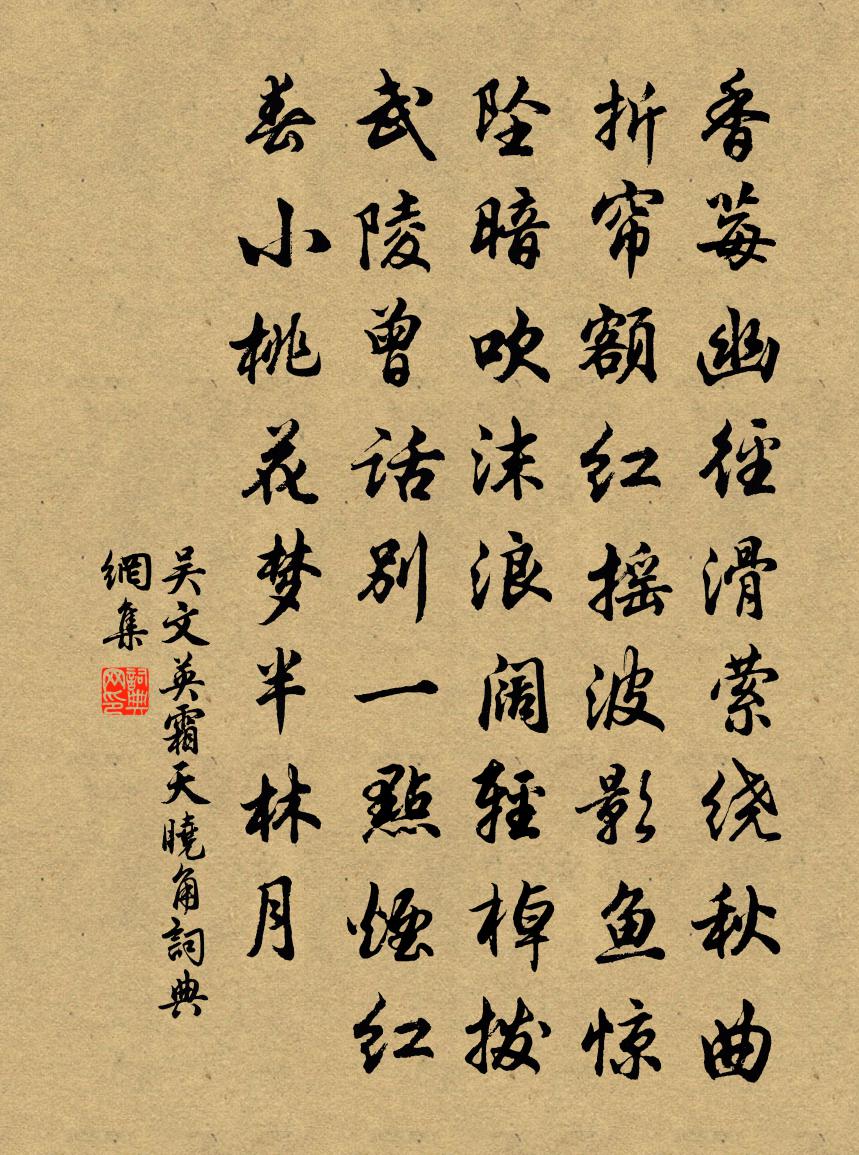 香莓幽径滑萦绕秋曲
折帘额红摇波影鱼惊
坠暗吹沫浪阔轻棹拨
武陵曾话别一點煙红
春小桃花梦半林月
吴文英霜天曉角詞典
網集
詞典网印